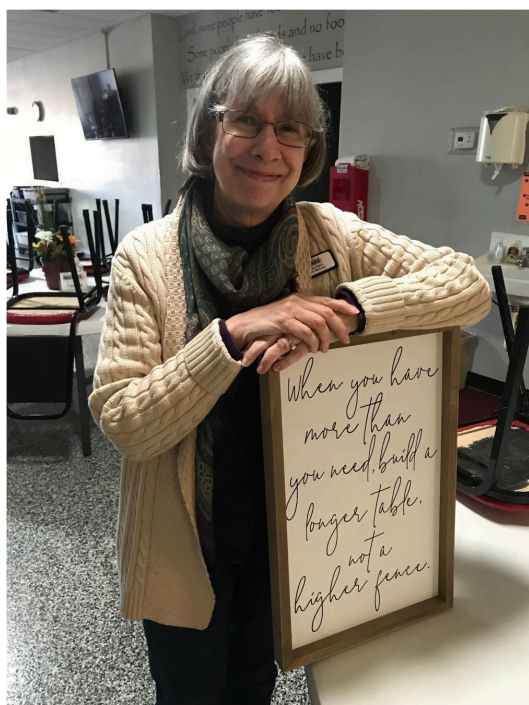 Lord, some people have
Some people and no foo
We have
When you have
more than
you need, build a
longer table,
not a
higher fence.